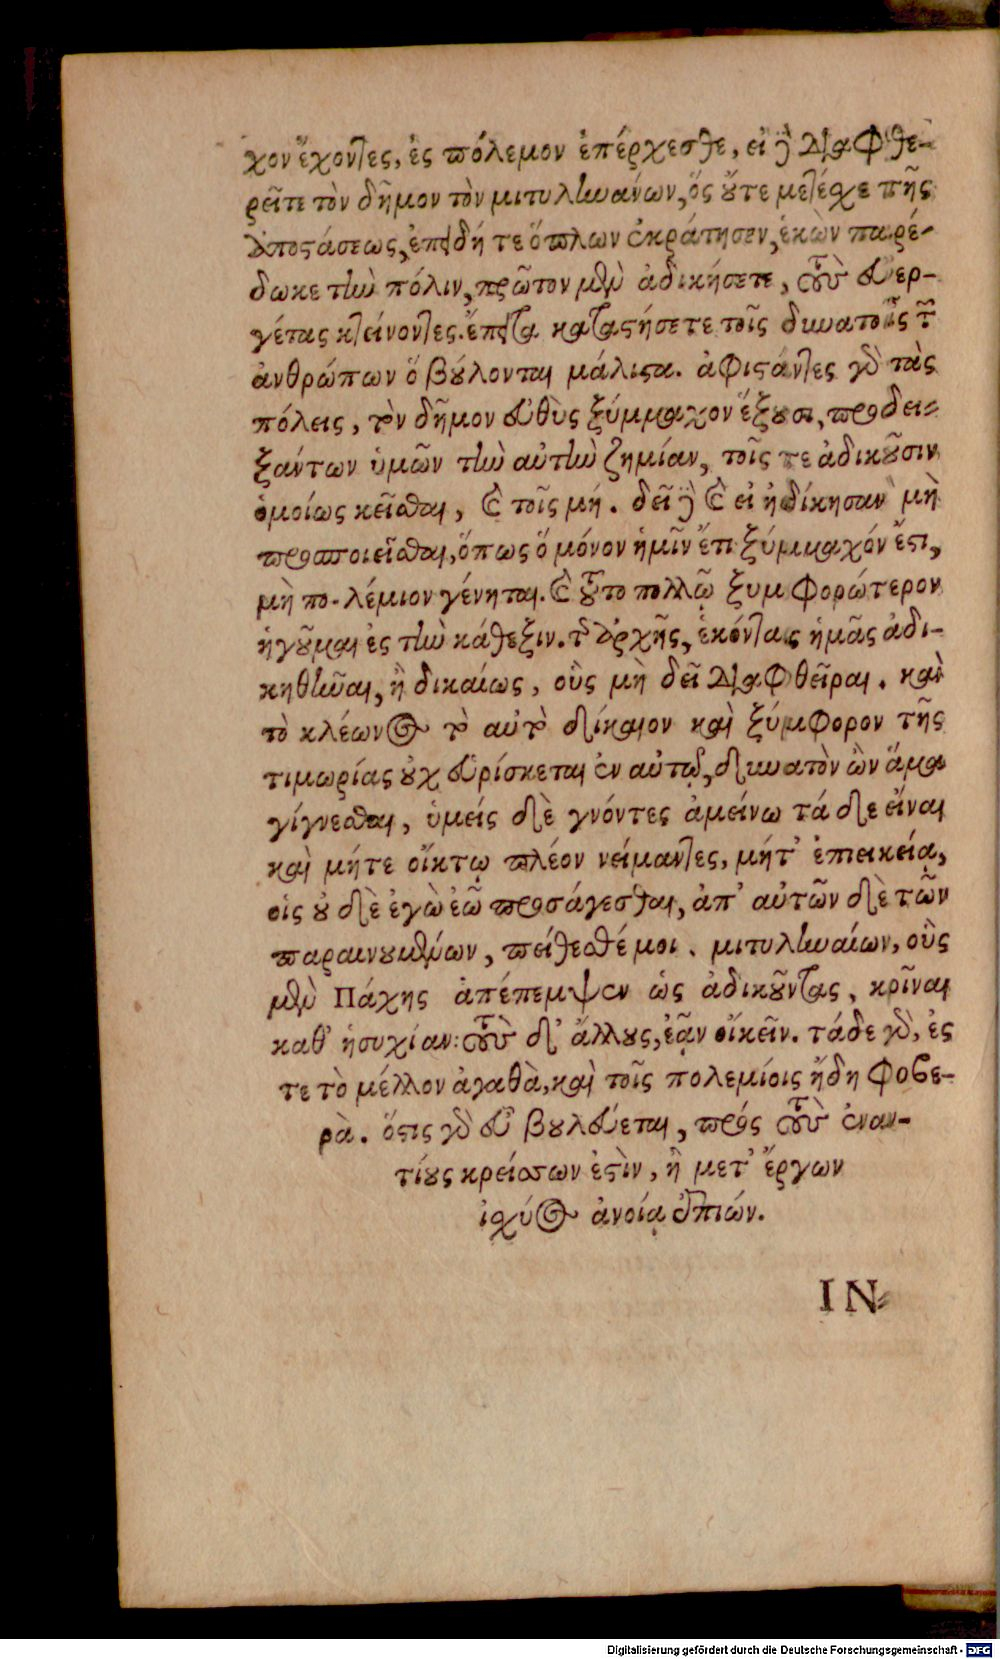 χον ἔχοντες, ἐς πόλεμον ἐπέρχεσθε, εἰ δὲ διαφθε-
ρεῖτε τὸν δῆμον τὸν μιτυληναίων, ὅς οὔτε μετέσχε τῆς
ἀποστάσεως, ἐπειδή τε ὅπλων ἐκράτησεν, ἑκὼν παρέ-
δωκε τὴν πόλιν, πρῶτον μὲν ἀδικήσετε, τοὺς εὐερ-
γέτας κτείνοντες. ἔπειτα καταστήσετε τοῖς δυνατοῖς τῶν
ἀνθρώπων ὃ βούλονται μάλιστα. ἀφιστάντες γὰρ τὰς
πόλεις, τὸν δῆμον εὐθὺς ξύμμαχον ἕξουσι, προδει-
ξάντων ὑμῶν τὴν αὐτὴν ζημίαν, τοῖς τε ἀδικοῦσιν
ὁμοίως κεῖσθαι, καὶ τοῖς μή. δεῖ δὲ καὶ εἰ ἠδίκησαν μὴ
προσποιεῖσθαι, ὅπως ὃ μόνον ἡμῖν ἔτι ξύμμαχόν ἐστι,
μὴ πο-λέμιον γένηται. καὶ τοῦτο πολλῷ ξυμφορώτερον
ἡγοῦμαι ἐς τὴν κάθεξιν. τῆς ἀρχῆς, ἑκόντας ἡμᾶς ἀδι-
κηθῆναι, ἢ δικαίως, οὓς μὴ δεῖ διαφθεῖραι. καὶ
τὸ κλέωνος τὸ αὐτὸ δίκαιον καὶ ξύμφορον τῆς
τιμωρίας οὐχ εὑρίσκεται ἐν αὐτῷ, δυνατὸν ὂν ἅμα
γίγνεσθαι, ὑμείς δὲ γνόντες ἀμείνω τάδε εἶναι
καὶ μήτε οἴκτῳ πλέον νείμαντες, μήτ' ἐπιεικείᾳ,
οἷς οὐδὲ ἐγὼ ἐῶ προσάγεσθαι, ἀπ' αὐτῶν δὲ τῶν
παραινουμένων, πείθεσθέ μοι. μιτυληναίων, οὓς
μὲν Πάχης ἀπέπεμψεν ὡς ἀδικοῦντας, κρῖναι
καθ' ἡσυχίαν: τοὺς δ' ἄλλους, ἐᾷν οἰκεῖν. τάδε γὰρ, ἐς
τε τὸ μέλλον ἀγαθὰ, καὶ τοῖς πολεμίοις ἤδη φοβε-
ρὰ. ὅστις γὰρ εὖ βουλεύεται, πρός τοὺς ἐναν-
τίους κρείσσων ἐστὶν, ἢ μετ' ἔργων
ἰσχύος ἀνοίᾳ ἐπιών.
IN-
Digitalisierung gefördert durch die Deutsche Forschungsgemeinschaft - DFG